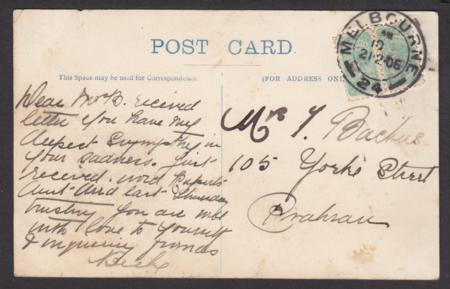 POST CARD
This Space may be used for Correspondence.
(FOR ADDRESS ONL
MELBOURNE
21 2 06
24
Dear Mrs B. recieved
letter you have my
deepest Sympathy in
your sadness. Just
received word
Aunt died last Thursday
trusting you are well
with love to yourself
& inquiring friends
Mrs Y. Backus
105 Yorke Street
Prahran